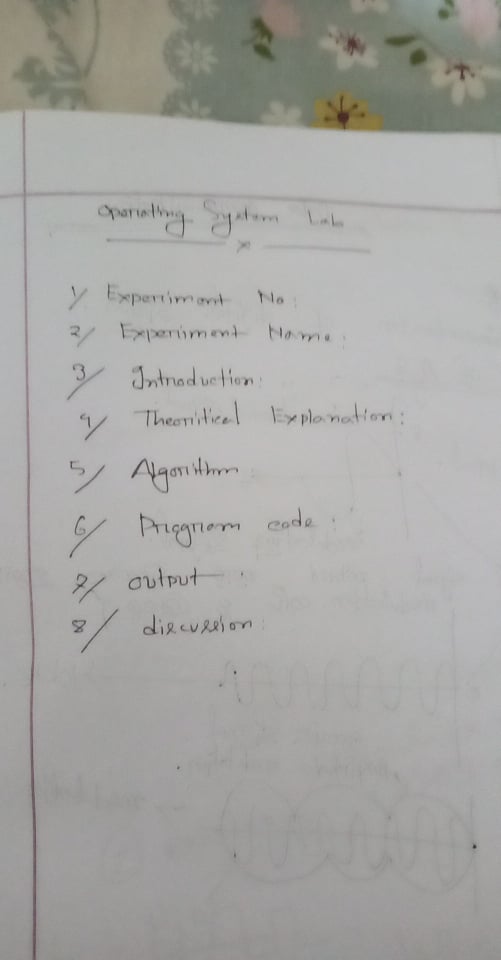 Operating System Lab
x
1/ Experiment No:
2/ Experiment Name:
3/ Introduction:
4/ Theoritical Explanation:
5/ Algorithm:
6/ Program code:
7/ output:
8/ discussion: